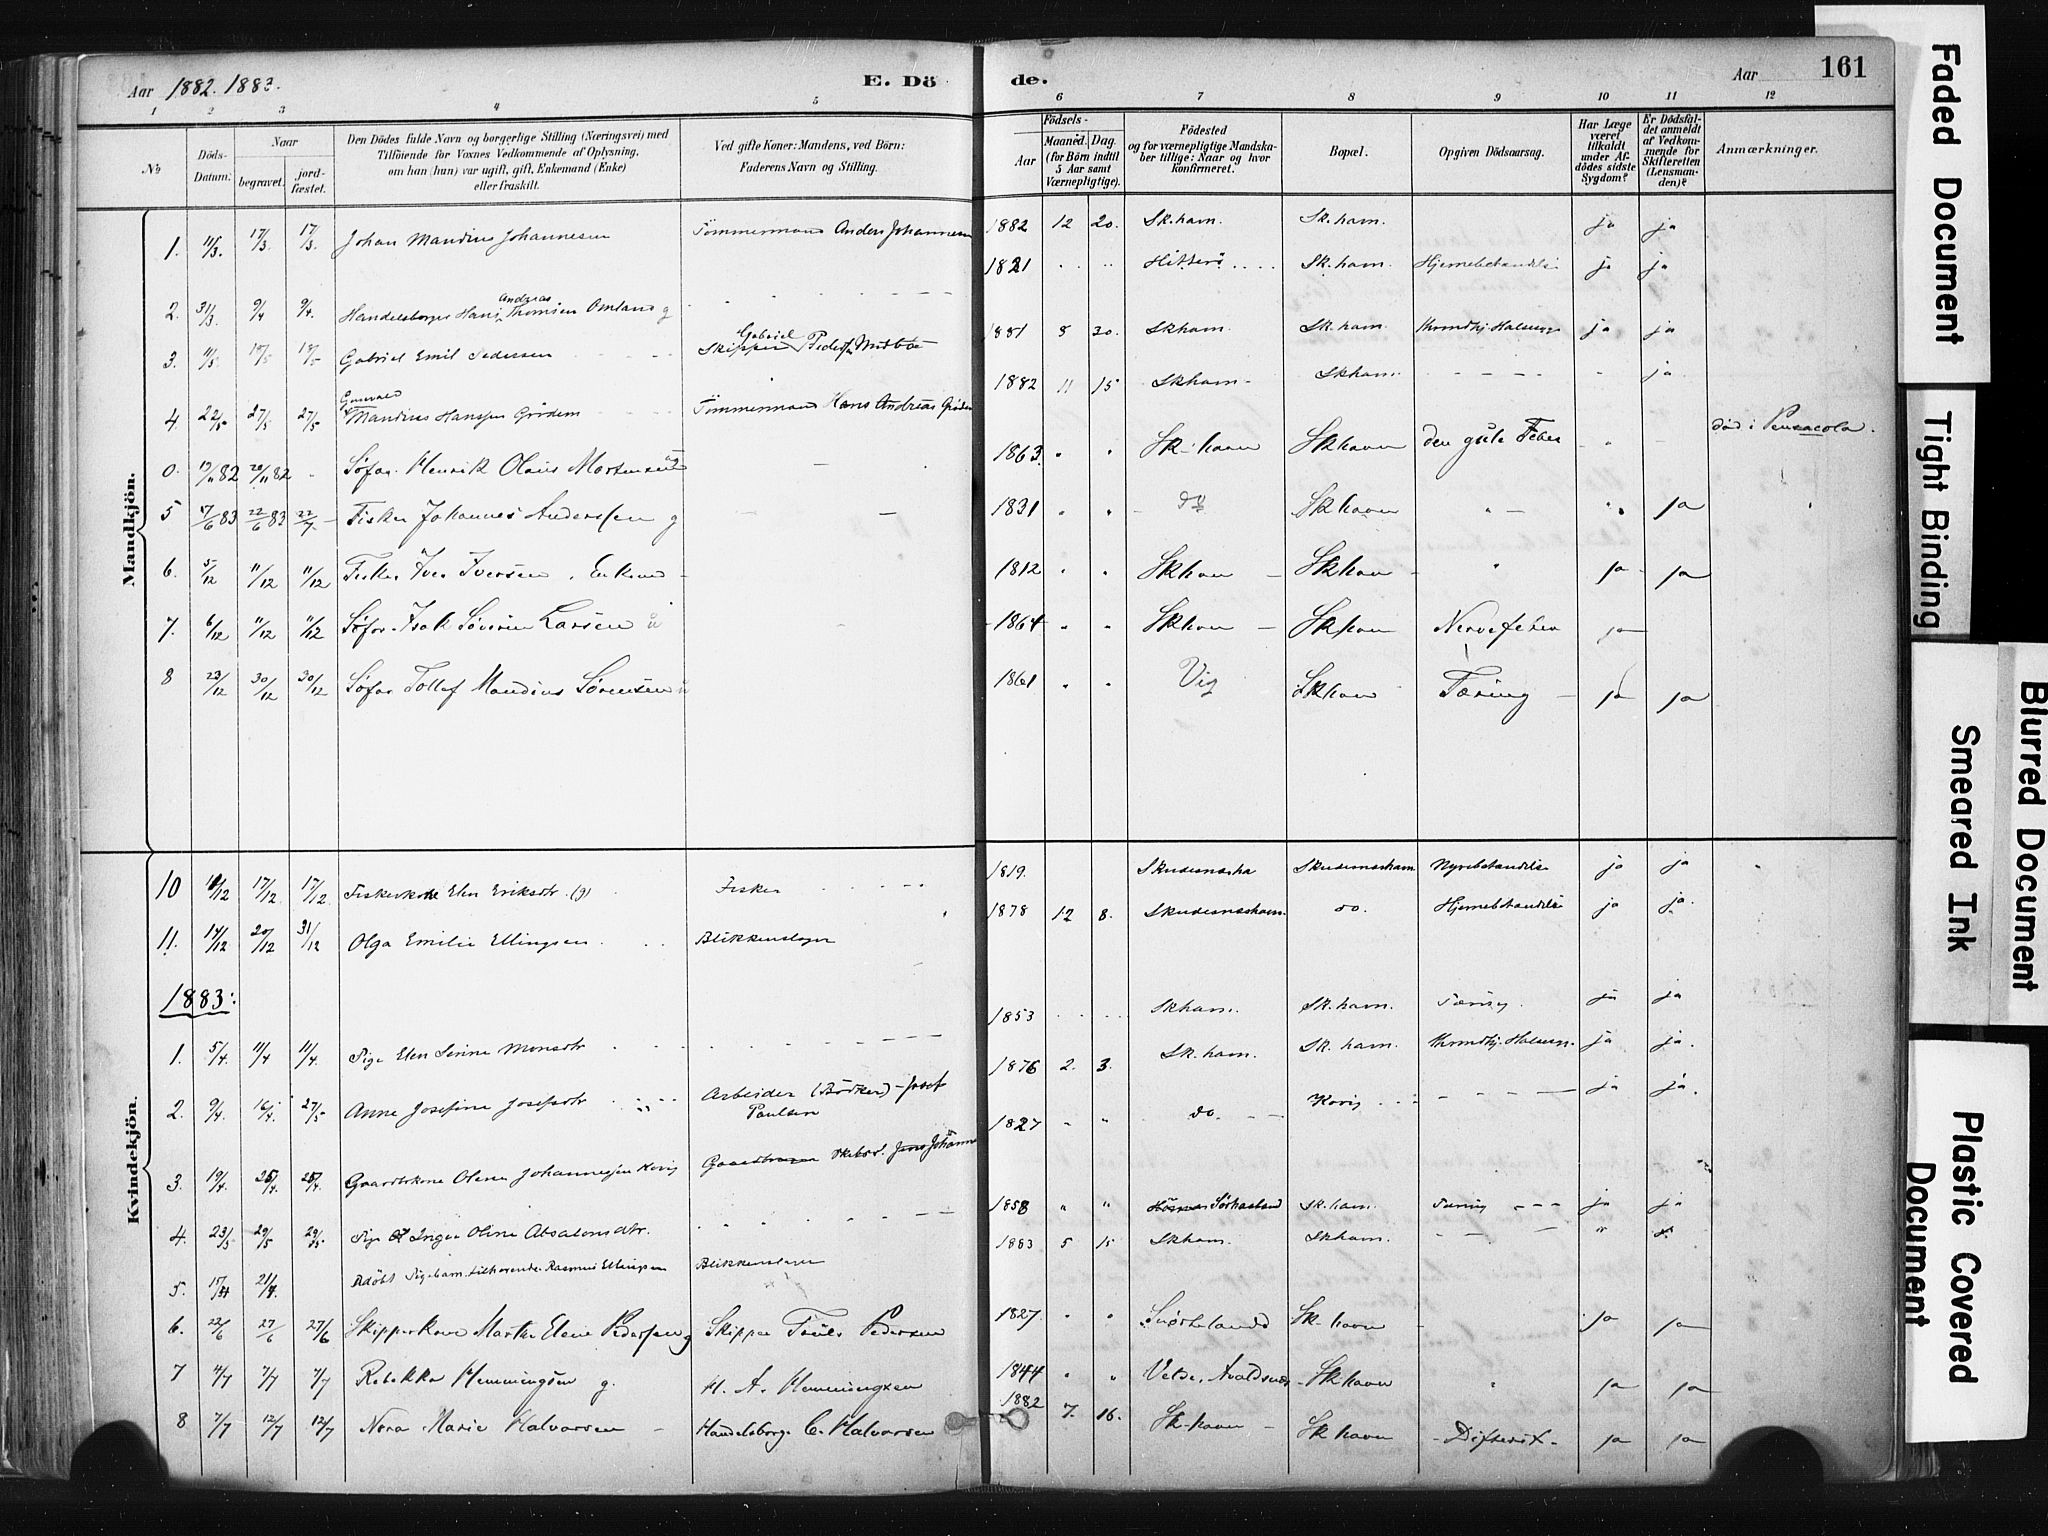 Aar 1882. 1883.
E. Dö
de.
Aar
161
1 2 3 4 5 6 7 8 9 10 11 12
No
Döds-Datum.
Naar
begravet.
jordfæstet.
Den Dödes fulde Navn og borgerlige Stilling (Næringsvei) med
Tilföiende for Voxnes Vedkommende af Oplysning,
om han (hun) var ugift, gift, Enkemand (Enke)
eller fraskilt.
Ved gifte Koner: Mandens, ved Börn:
Faderens Navn og Stilling.
Födsels-
Aar
Maaned. Dag.
(for Börn indtil
5 Aar samt
Værnepligtige).
Födested
og for værnepligtige Mandska-
ber tillige: Naar og hvor
Konfirmeret.
Bopæl.
Opgiven Dödsaarsag.
Har Læge
været
tilkaldt
under Af-
dödes sidste
Sygdom?
Er Dödsfal-
det anmeldt
af Vedkom-
mende for
Skifteretten
(Lensman-
den)?
Anmærkninger.
Mandkjön.
1. 11/3. 17/3. 17/3. Johan Mandius Johannesen Tömmermand Anders Johannesen 1882 12 20. Sk.havn. Sk.havn. ja ja
2. 31/3. 9/4 9/4. Handelsborger Hans Andreas Thomsen Omland g 1821 Hitterö Sk.havn. Hjernebetændelse ja ja
3. 11/5. 18/5 18/5. Gabriel Emil Pedersen Skipper Gabriel Peder 1881 8 30. Skhavn. Sk.havn. ja ja
4. 22/5 27/5 27/5 Gunvald Mandius Hanssen Grödem Tömmermand Hans Andreas Gröden 1882 11 15 Skhavn. Skhavn. ja
0. 19/11 82 20/11 82 Søfar. Henrik Olaus Mortensen 1863. Sk-havn Skhavn den gule Feber død i Pensacola.
5 17/6 83 22/6 83 22/7 Fisker Johannes Anderssen g 1831 do Skhavn ja
6. 5/12 11/12 11/12 Fisker Iver Iversen. Enkem 1812 Skhavn Skhavn ja ja
7. 6/12 11/12 11/12 Søfar. Isak Severin Larsen u 1864 Skhavn Skhavn Nervefeber ja
8 23/12 30/12 30/12 Søfar Tollef Mandius Sørensen u 1861 Vig Skhavn Tæring ja ja
Kvindekjön.
10 10/12 17/12. 17/12. Fiskerkone Elen Eriksdtr. (g) Fisker 1819. Skudesnesha Skudesneshavn Nyrebetændelse ja ja
11. 14/12 20/12 31/12 Olga Emilie Ellingsen Blikkenslager 1878 12 8. Skudesneshavn. do. Hjernebetændelse ja ja.
1883:
1. 5/4. 11/4 11/4. Pige Elen Serine Monsdtr 1853 Skhavn. Sk.havn. Tæring. ja ja
2. 9/4. 16/4. 27/5 Anne Josefine Josefsdtr Arbeider (Bödker) Josef Paulsen 1876 2. 3. Sk.havn. Sk.havn. ja ja.
3. 19/4. 25/4. 25/4. Gaardbrkone Olene Johannessen 1827 do. ja ja.
4. 23/5 29/5 29/5. Pige Inger Oline Absalonsdtr. 1858 Sørhaaland Sk.havn. Tæring ja ja
5. 15/ 21/ Udöbt Pigebarn tilhørende Rasmus Ellingsen Blikkenslager 1883 5 15 Skhavn. Skhavn.
6. 22/6 27/6 27/6 Skipperkone Marthe Elene Pedersen g Skipper Pedersen 1827. Sk-havn ja ja
7 4/7 7/7 7/7 Rebekka Hemmingsen g. H. A. Hemmingsen 1844 Avaldsnes Skhavn ja ja
8 7/7 12/7 12/7 Nora Marie Halvorsen Handelsborge C. Halvorsen 1882 7. 16. Sk-havn Skhavn Difterit ja ja
Faded Document
Tight Binding
Blurred Document
Smeared Ink
Plastic Covered Document